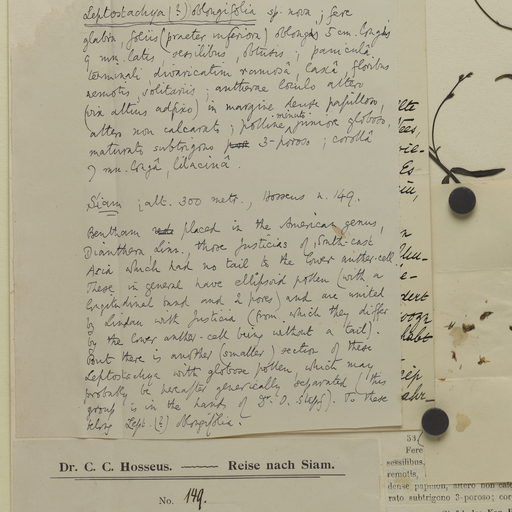 Leptostachya (?) oblongifolia sp. nov.; fere
glabra, foliis (praeter inferiora) oblongis 5 cm. longis
9 mm. latis, sessilibus, obtusis; paniculâ
terminali, divaricatim ramosâ, laxâ, floribus
remotis, solitariis; antherae loculo altero
(vix altius adfixo) in margine dense papilloso,
altero non calcarato; polline minuto juniore globoso,
maturato subtrigono 3-poroso; corollâ
7 mm. longâ, lilacinâ.
Siam; alt. 300 metr., Hosseus n. 149.
Bentham placed in the American genus,
Dianthera, Linn., those Justicias of South-east
Asia which had no tail to the lower anther-cell
These in general have ellipsoid pollen (with a
longitudinal band and 2 pores) and are united
by Lindau with Justicia (from which they differ
by the lower anther-cell being without a tail).
But there is another (smaller) section of these
Leptostachya with globose pollen, which may
probably be hereafter generically separated (this
group is in the hands of Dr. O. Stapf). To these
belong Lept. (?) oblongifolia.
Dr. C. C. Hosseus. Reise nach Siam.
No. 149.
53
Fere
sessilibus,
remotis,
dense papilloso, altero non
rato subtrigono 3-poroso; cor